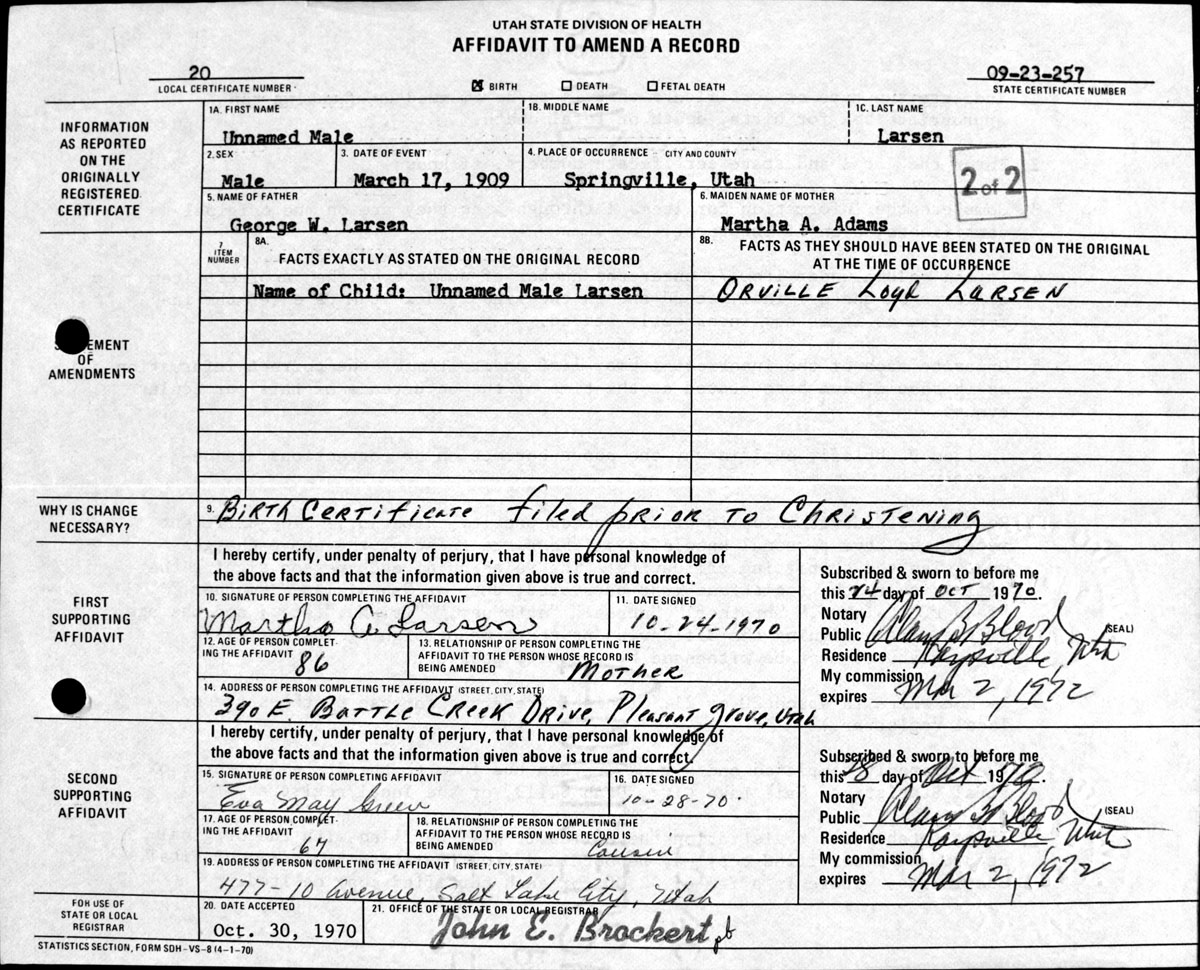 UTAH STATE DIVISION OF HEALTH
AFFIDAVIT TO AMEND A RECORD
20
LOCAL CERTIFICATE NUMBER
☒ BIRTH ☐ DEATH ☐ FETAL DEATH
09-23-257
STATE CERTIFICATE NUMBER
INFORMATION
AS REPORTED
ON THE
ORIGINALLY
REGISTERED
CERTIFICATE
1A. FIRST NAME
Unnamed Male
1B. MIDDLE NAME
1C. LAST NAME
Larsen
2. SEX
Male
3. DATE OF EVENT
March 17, 1909
4. PLACE OF OCCURRENCE - CITY AND COUNTY
Springville, Utah
2 of 2
5. NAME OF FATHER
George W. Larsen
6. MAIDEN NAME OF MOTHER
Martha A. Adams
7
ITEM
NUMBER
8A.
FACTS EXACTLY AS STATED ON THE ORIGINAL RECORD
8B. FACTS AS THEY SHOULD HAVE BEEN STATED ON THE ORIGINAL
AT THE TIME OF OCCURRENCE
EMENT
OF
AMENDMENTS
Name of Child: Unnamed Male Larsen
ORVILLE Loyl LARSEN
WHY IS CHANGE
NECESSARY?
9. BIRTH CERTIFICATE filed prior to Christening
FIRST
SUPPORTING
AFFIDAVIT
I hereby certify, under penalty of perjury, that I have personal knowledge of
the above facts and that the information given above is true and correct.
10. SIGNATURE OF PERSON COMPLETING THE AFFIDAVIT
Martha A. Larsen
11. DATE SIGNED
10-24-1970
12. AGE OF PERSON COMPLET-
ING THE AFFIDAVIT 86
13. RELATIONSHIP OF PERSON COMPLETING THE
AFFIDAVIT TO THE PERSON WHOSE RECORD IS
BEING AMENDED Mother
14. ADDRESS OF PERSON COMPLETING THE AFFIDAVIT (STREET, CITY, STATE)
390 E. Battle Creek Drive, Pleasant Grove, Utah
Subscribed & sworn to before me
this 24 day of Oct 1970.
Notary
Public Blood (SEAL)
Residence Kaysville, Utah
My commission
expires Mar 2, 1972
SECOND
SUPPORTING
AFFIDAVIT
I hereby certify, under penalty of perjury, that I have personal knowledge of
the above facts and that the information given above is true and correct.
15. SIGNATURE OF PERSON COMPLETING AFFIDAVIT
Eva May Green
16. DATE SIGNED
10-28-70.
17. AGE OF PERSON COMPLET-
ING THE AFFIDAVIT 67
18. RELATIONSHIP OF PERSON COMPLETING THE
AFFIDAVIT TO THE PERSON WHOSE RECORD IS
BEING AMENDED Cousin
19. ADDRESS OF PERSON COMPLETING THE AFFIDAVIT (STREET, CITY, STATE)
477-10 Avenue, Salt Lake City, Utah
Subscribed & sworn to before me
this 28 day of Oct 1970.
Notary
Public Blood (SEAL)
Residence Kaysville, Utah
My commission
expires Mar 2, 1972
FOR USE OF
STATE OR LOCAL
REGISTRAR
20. DATE ACCEPTED
Oct. 30, 1970
21. OFFICE OF THE STATE OR LOCAL REGISTRAR
John E. Brockert pb
STATISTICS SECTION, FORM SDH-VS-8 (4-1-70)